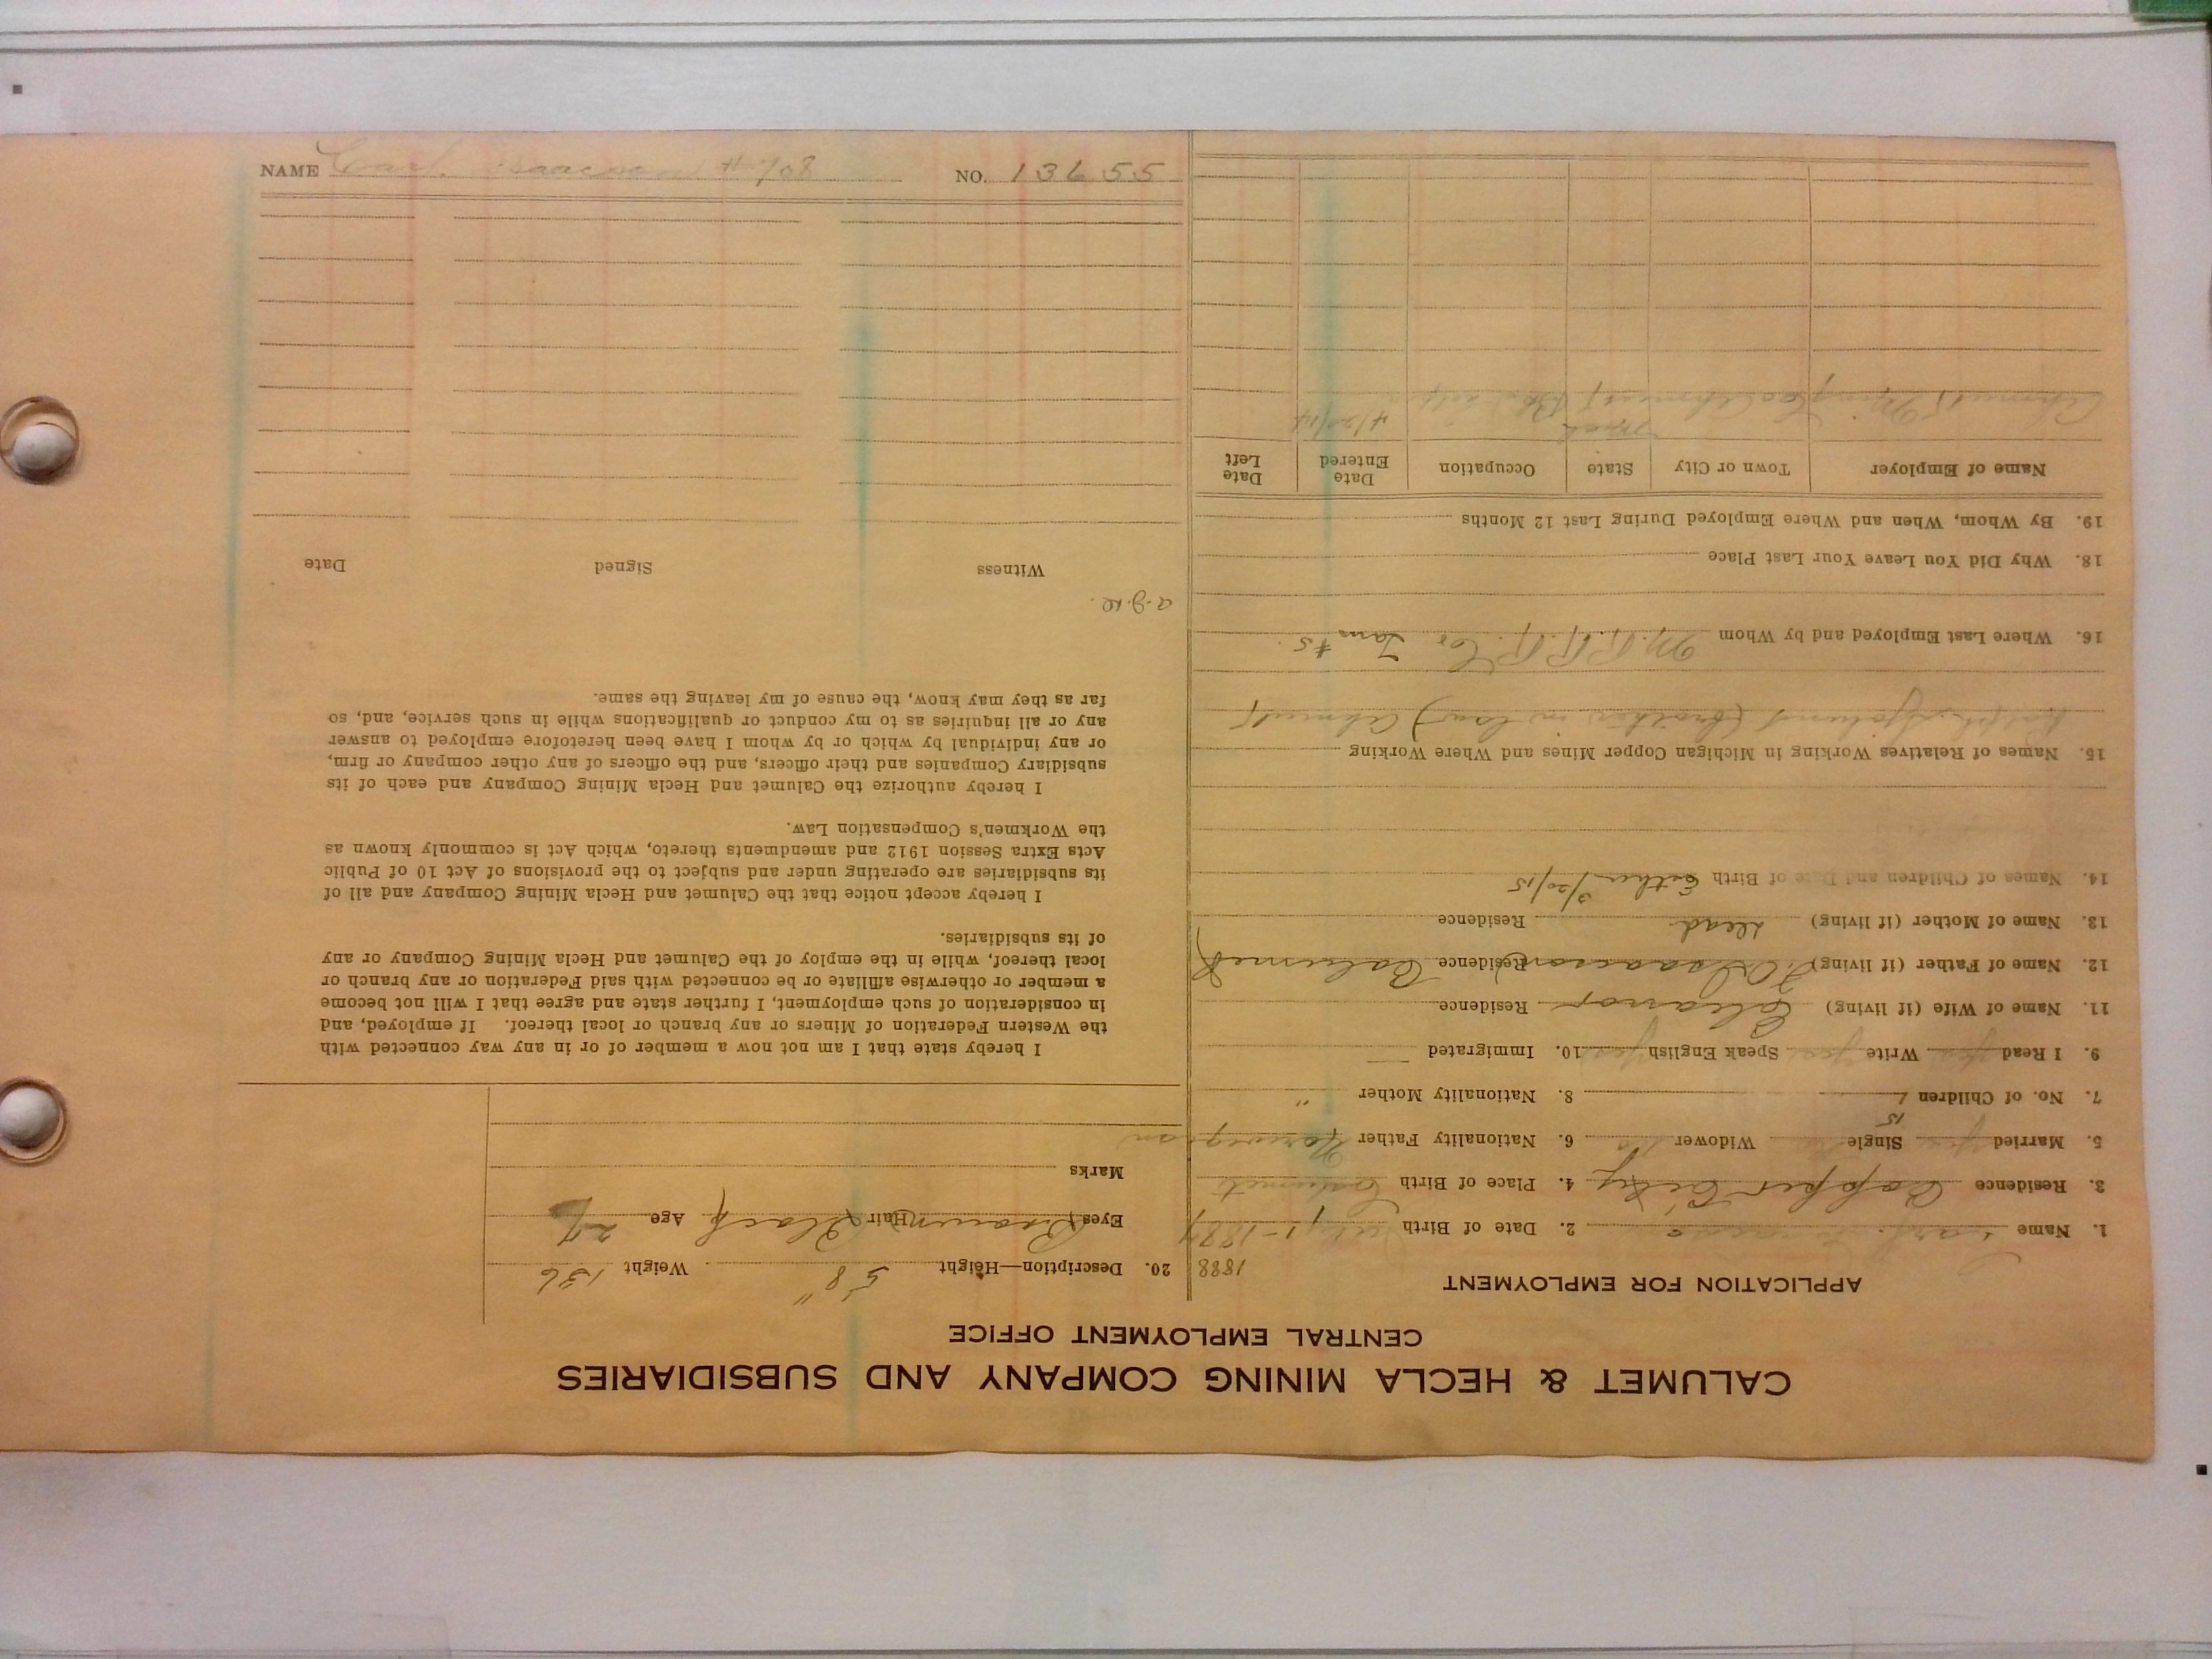 CALUMET & HECLA MINING COMPANY AND SUBSIDIARIES
CENTRAL EMPLOYMENT OFFICE
APPLICATION FOR EMPLOYMENT
1888
1. Name Carl 2. Date of Birth July 1-1887
3. Residence Copper City 4. Place of Birth Calumet
5. Married yes Single Widower 6. Nationality Father Norwegian
15
7. No. of Children 1 8. Nationality Mother "
9. I Read yes Write yes Speak English yes 10. Immigrated —
11. Name of Wife (if living) Eleanor Residence
12. Name of Father (if living) Isaacson Residence Calumet
13. Name of Mother (if living) Dead Residence
14. Names of Children and Date of Birth Esther 3/20/15
15. Names of Relatives Working in Michigan Copper Mines and Where Working
(Brother in law) Ahmeek
16. Where Last Employed and by Whom M.R.R.R. Co #5.
18. Why Did You Leave Your Last Place
19. By Whom, When and Where Employed During Last 12 Months
Name of Employer Town or City State Occupation Date Entered Date Left
Ahmeek Mining Co Ahmeek Mich 4/20/14
20. Description—Height 5' 8" Weight 136
Eyes Brown Hair Black Age 27
Marks
I hereby state that I am not now a member of or in any way connected with
the Western Federation of Miners or any branch or local thereof. If employed, and
in consideration of such employment, I further state and agree that I will not become
a member or otherwise affiliate or be connected with said Federation or any branch or
local thereof, while in the employ of the Calumet and Hecla Mining Company or any
of its subsidiaries.
I hereby accept notice that the Calumet and Hecla Mining Company and all of
its subsidiaries are operating under and subject to the provisions of Act 10 of Public
Acts Extra Session 1912 and amendments thereto, which Act is commonly known as
the Workmen's Compensation Law.
I hereby authorize the Calumet and Hecla Mining Company and each of its
subsidiary Companies and their officers, and the officers of any other company or firm,
or any individual by which or by whom I have been heretofore employed to answer
any or all inquiries as to my conduct or qualifications while in such service, and, so
far as they may know, the cause of my leaving the same.
Witness Signed Date
NAME Carl Isaacson #708 NO. 13655